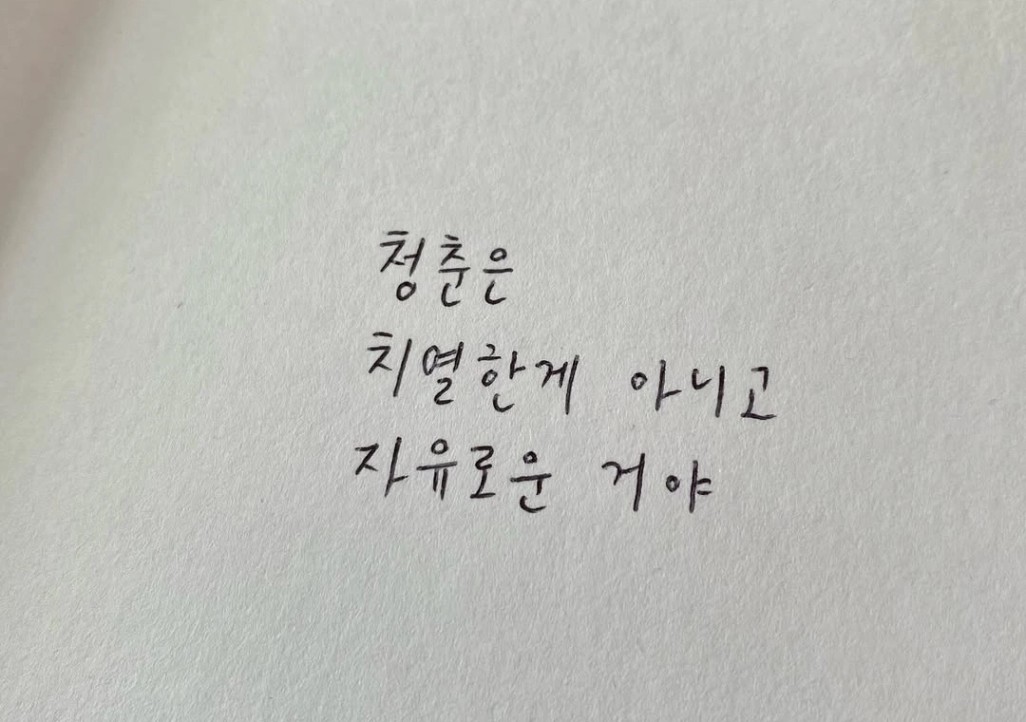 청춘은
치열한게 아니고
자유로운 거야